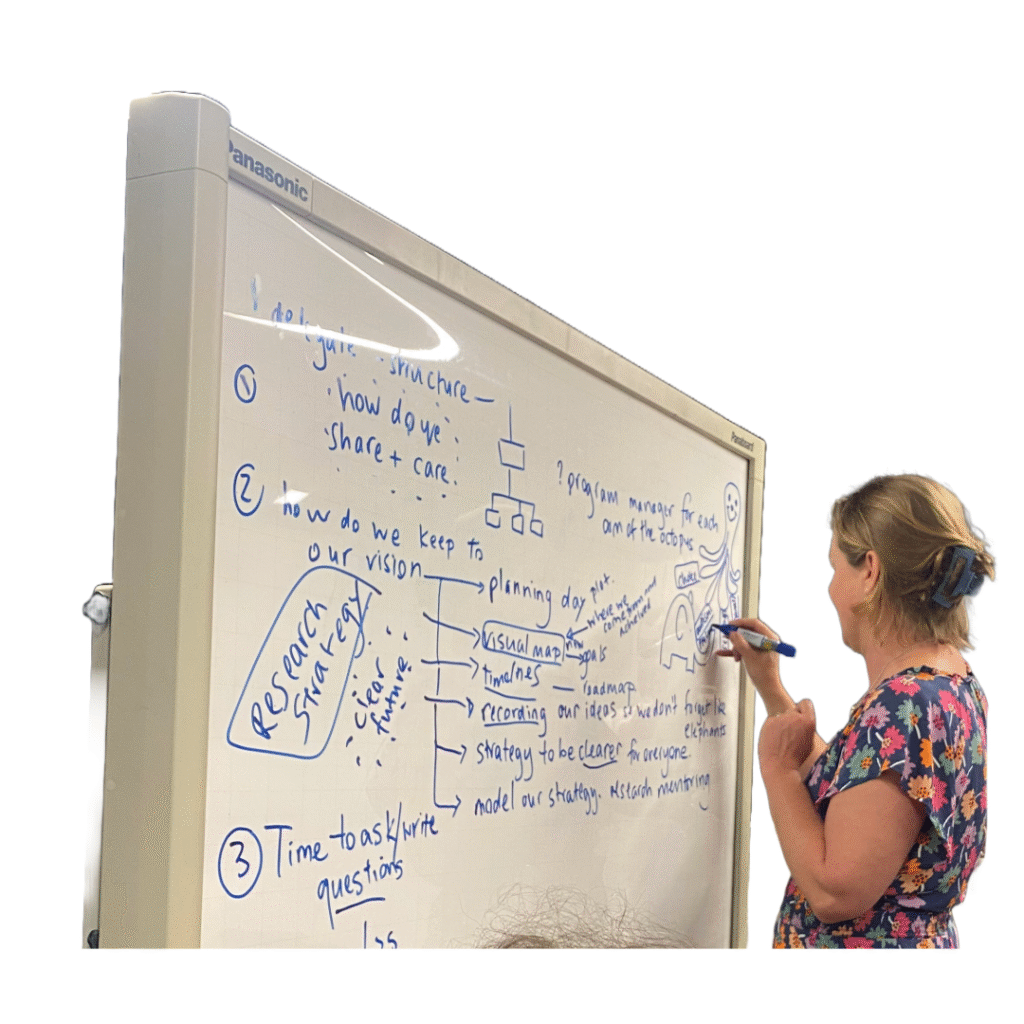 Panasonic
Panaboard
delegate structure —
① how do we
share + care.
? program manager for each
arm of the octopus
② how do we keep to
our vision
planning day plot.
where we
come from and
achieved
visual map
now
goals
timelines — roadmap
recording our ideas so we don't forget like
elephants
strategy to be clearer for everyone.
model our strategy. research mentoring
Research
Strategy
clear
future
③ Time to ask/write
questions